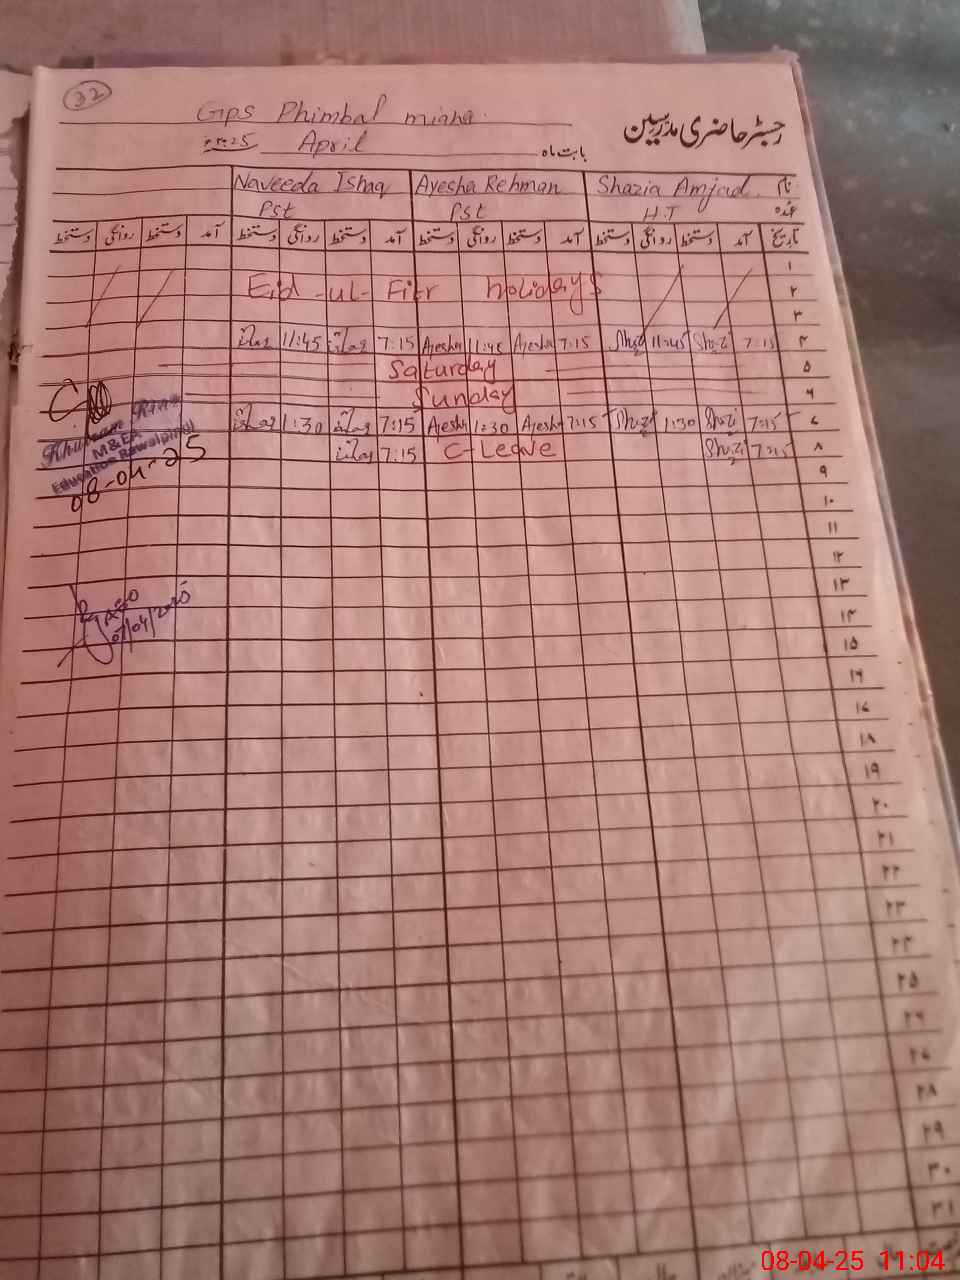 32
GPS Phimbal miana
رجسٹر حاضری مدرسین
2025 April بابت ماہ
نام Shazia Amjad Ayesha Rehman Naveeda Ishaq
عہدہ H.T Pst Pst
تاریخ آمد دستخط روانگی دستخط آمد دستخط روانگی دستخط آمد دستخط روانگی دستخط آمد دستخط روانگی دستخط
۱
۲ Eid-ul-Fitr holidays
۳
۴ 7:15 Shazi 11:45 Shazi 7:15 Ayesha 11:45 Ayesha 7:15 11:45
۵ Saturday
۶ Sunday
۷ 7:15 Shazi 1:30 Shazi 7:15 Ayesha 1:30 Ayesha 7:15 1:30
۸ 7:15 Shazi C-Leave 7:15
Khurram
M&EA
Education Rawalpindi
08-04-25
۹
۱۰
۱۱
۱۲
۱۳
07/04/2025
۱۴
۱۵
۱۶
۱۷
۱۸
۱۹
۲۰
۲۱
۲۲
۲۳
۲۴
۲۵
۲۶
۲۷
۲۸
۲۹
۳۰
۳۱
08-04-25 11:04